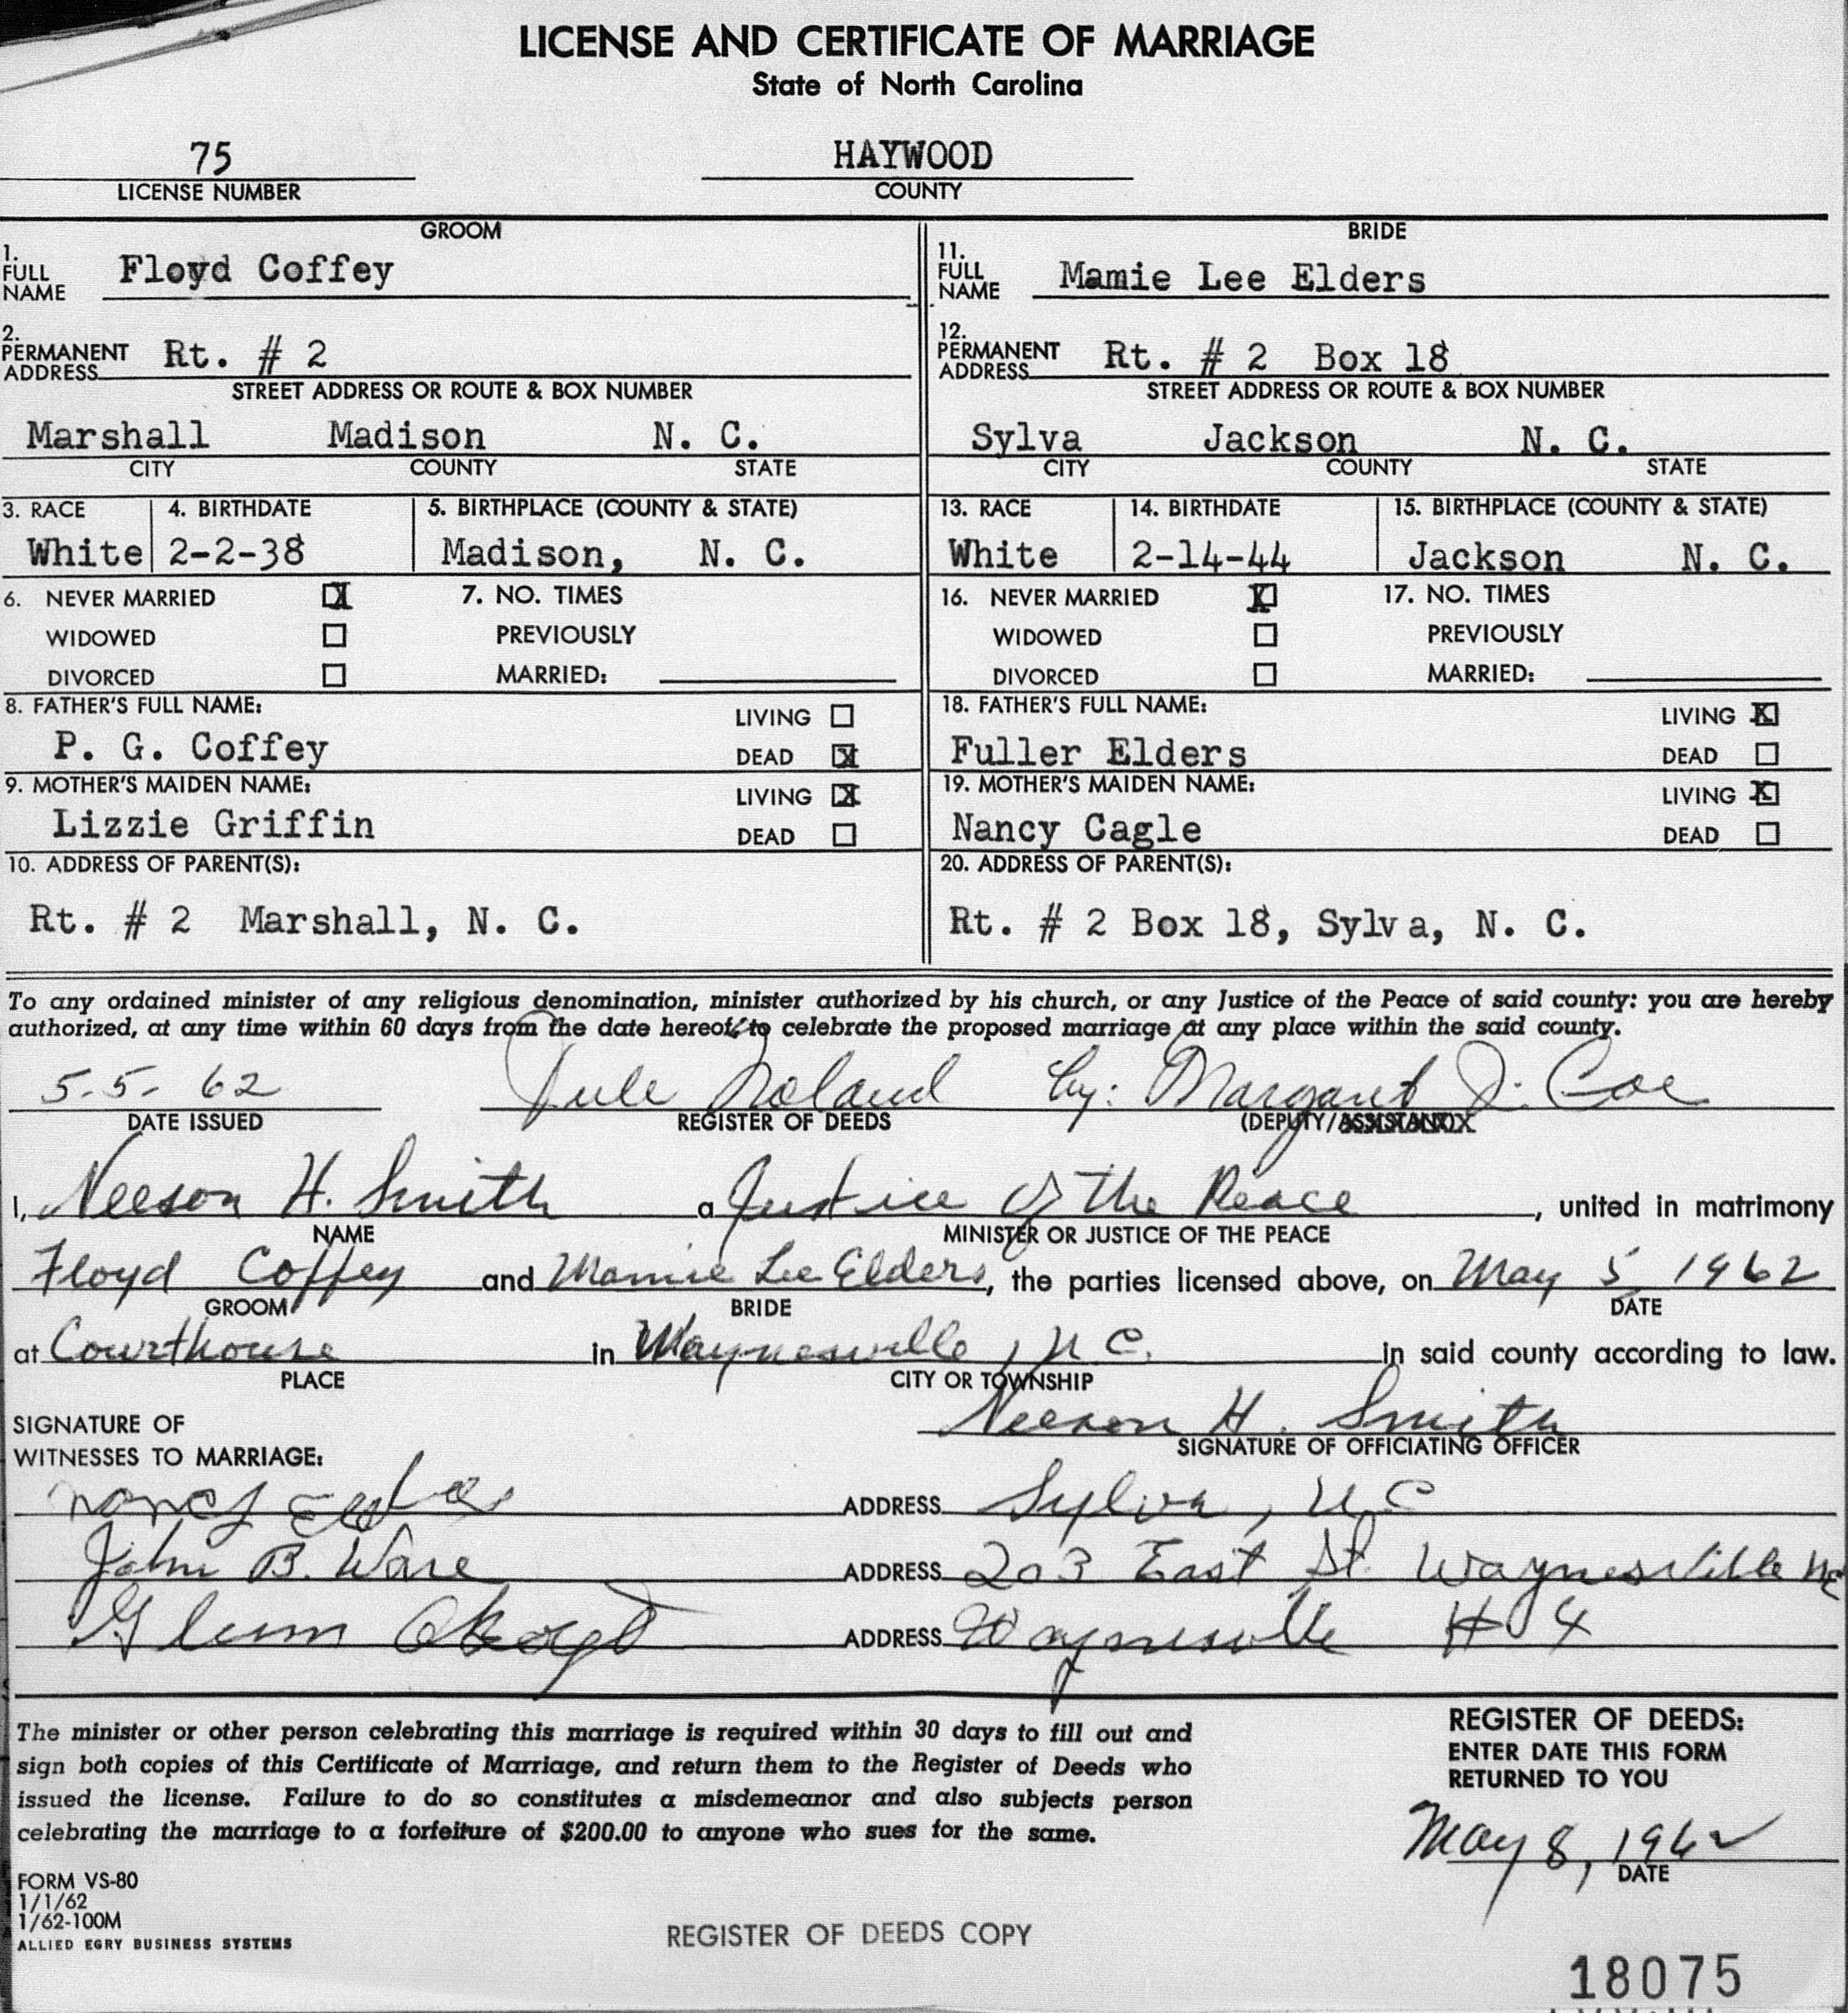 LICENSE AND CERTIFICATE OF MARRIAGE
State of North Carolina
75 HAYWOOD
LICENSE NUMBER COUNTY
GROOM BRIDE
1. FULL NAME Floyd Coffey
11. FULL NAME Mamie Lee Elders
2. PERMANENT ADDRESS Rt. # 2
12. PERMANENT ADDRESS Rt. # 2 Box 18
STREET ADDRESS OR ROUTE & BOX NUMBER STREET ADDRESS OR ROUTE & BOX NUMBER
Marshall Madison N. C. Sylva Jackson N. C.
CITY COUNTY STATE CITY COUNTY STATE
3. RACE 4. BIRTHDATE 5. BIRTHPLACE (COUNTY & STATE) 13. RACE 14. BIRTHDATE 15. BIRTHPLACE (COUNTY & STATE)
White 2-2-38 Madison, N. C. White 2-14-44 Jackson N. C.
6. NEVER MARRIED X 7. NO. TIMES 16. NEVER MARRIED X 17. NO. TIMES
WIDOWED PREVIOUSLY WIDOWED PREVIOUSLY
DIVORCED MARRIED: DIVORCED MARRIED:
8. FATHER'S FULL NAME: LIVING 18. FATHER'S FULL NAME: LIVING X
P. G. Coffey DEAD X Fuller Elders DEAD
9. MOTHER'S MAIDEN NAME: LIVING X 19. MOTHER'S MAIDEN NAME: LIVING X
Lizzie Griffin DEAD Nancy Cagle DEAD
10. ADDRESS OF PARENT(S): 20. ADDRESS OF PARENT(S):
Rt. # 2 Marshall, N. C. Rt. # 2 Box 18, Sylva, N. C.
To any ordained minister of any religious denomination, minister authorized by his church, or any Justice of the Peace of said county: you are hereby
authorized, at any time within 60 days from the date hereof, to celebrate the proposed marriage at any place within the said county.
5-5-62 Jule Noland by: Margaret J. Coe
DATE ISSUED REGISTER OF DEEDS (DEPUTY/ASSISTANT)
I, Neeson H. Smith a Justice of the Peace, united in matrimony
NAME MINISTER OR JUSTICE OF THE PEACE
Floyd Coffey and Mamie Lee Elders, the parties licensed above, on May 5 1962
GROOM BRIDE DATE
at Courthouse in Waynesville, N C. in said county according to law.
PLACE CITY OR TOWNSHIP
SIGNATURE OF Neeson H. Smith
WITNESSES TO MARRIAGE: SIGNATURE OF OFFICIATING OFFICER
Nancy Elders ADDRESS Sylva, N.C
John B. Ware ADDRESS 203 East St. Waynesville NC
Glenn ADDRESS Waynesville # 4
The minister or other person celebrating this marriage is required within 30 days to fill out and
sign both copies of this Certificate of Marriage, and return them to the Register of Deeds who
issued the license. Failure to do so constitutes a misdemeanor and also subjects person
celebrating the marriage to a forfeiture of $200.00 to anyone who sues for the same.
REGISTER OF DEEDS:
ENTER DATE THIS FORM
RETURNED TO YOU
May 8, 1962
DATE
FORM VS-80
1/1/62
1/62-100M
ALLIED EGRY BUSINESS SYSTEMS
REGISTER OF DEEDS COPY
18075